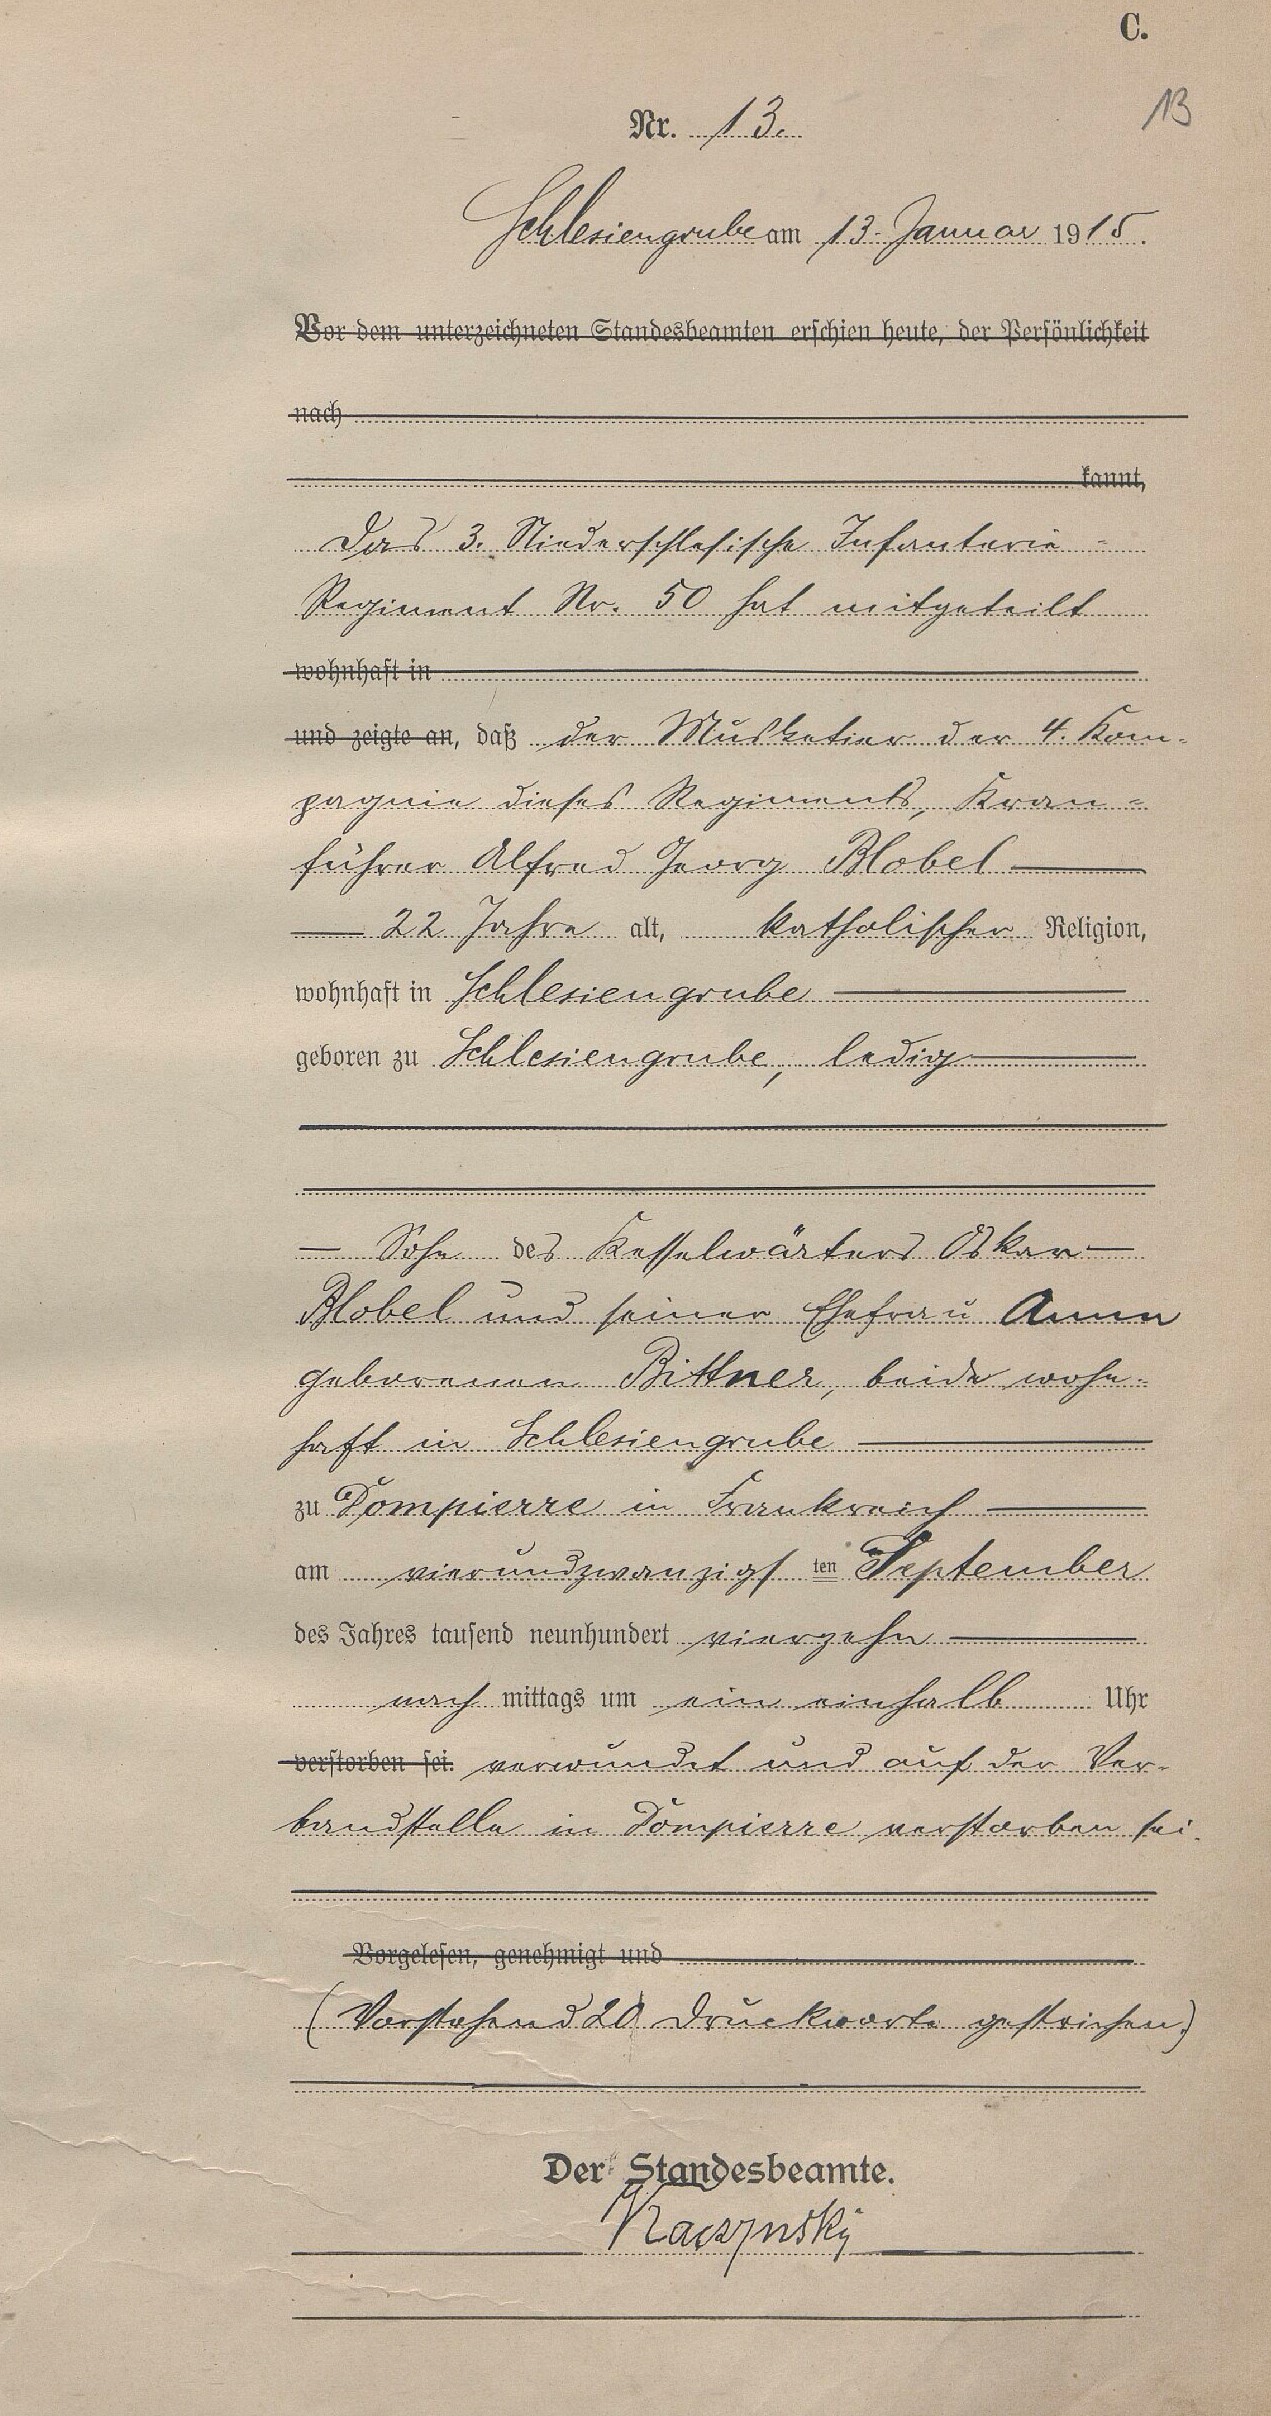 C.
13
Nr. 13.
Schlesiengrube am 13. Januar 1915.
Vor dem unterzeichneten Standesbeamten erschien heute, der Persönlichkeit
nach
kannt,
Das 3. Niederschlesische Infanterie-
Regiment Nr. 50 hat mitgeteilt
wohnhaft in
und zeigte an, daß der Musketier der 4. Kom-
pagnie dieses Regiments, Kran-
führer Alfred Georg Blobel
22 Jahre alt, katholischer Religion,
wohnhaft in Schlesiengrube
geboren zu Schlesiengrube, ledig
Sohn des Kesselwärters Oskar
Blobel und seiner Ehefrau Anna
geborenen Bittner, beide wohn-
haft in Schlesiengrube
zu Dompierre in Frankreich
am vierundzwanzigsten September
des Jahres tausend neunhundert vierzehn
nach mittags um ein einhalb Uhr
verstorben sei. verwundet und auf der Ver-
bandstelle in Dompierre verstorben sei.
Vorgelesen, genehmigt und
(Vorstehend 20 Druckworte gestrichen.)
Der Standesbeamte.
Kaczynsky